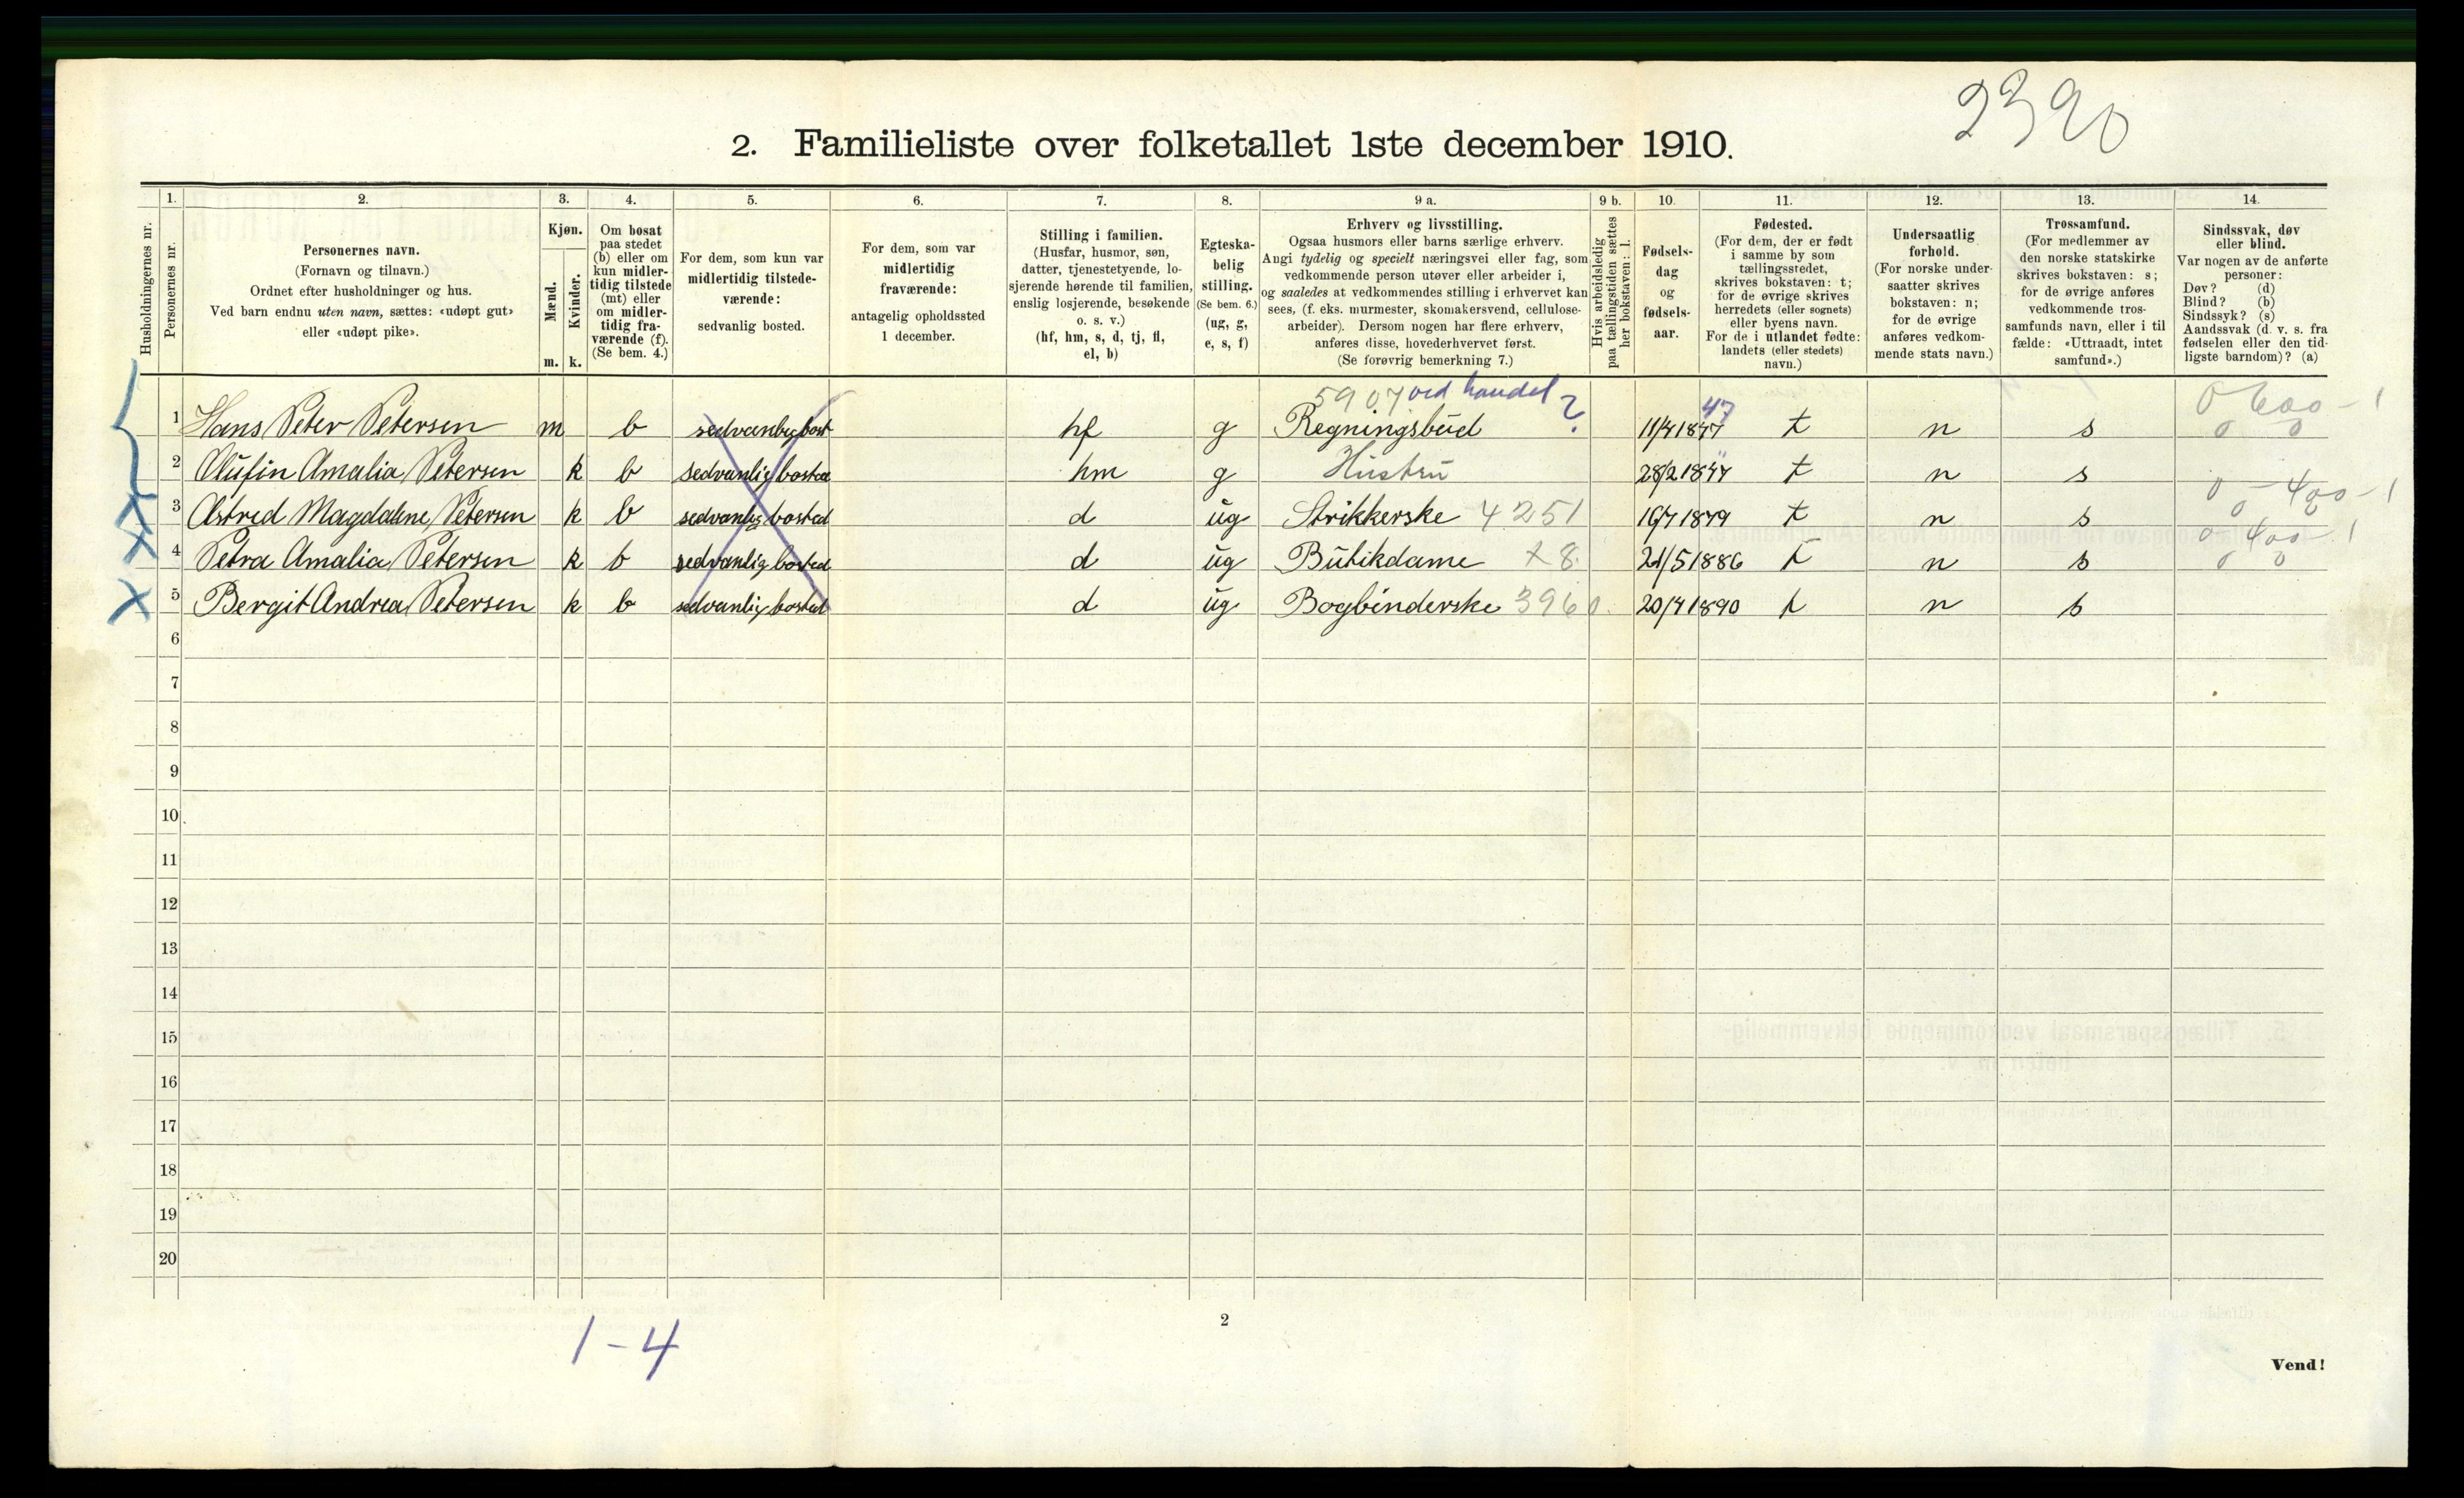 2390
2. Familieliste over folketallet 1ste december 1910.
Husholdningernes nr.
1.
Personernes nr.
2.
Personernes navn.
(Fornavn og tilnavn.)
Ordnet efter husholdninger og hus.
Ved barn endnu uten navn, sættes: «udøpt gut»
eller «udøpt pike».
3.
Kjøn.
Mænd.
m.
Kvinder.
k.
4.
Om bosat
paa stedet
(b) eller om
kun midler-
tidig tilstede
(mt) eller
om midler-
tidig fra-
værende (f).
(Se bem. 4.)
5.
For dem, som kun var
midlertidig tilstede-
værende:
sedvanlig bosted.
6.
For dem, som var
midlertidig
fraværende:
antagelig opholdssted
1 december.
7.
Stilling i familien.
(Husfar, husmor, søn,
datter, tjenestetyende, lo-
sjerende hørende til familien,
enslig losjerende, besøkende
o. s. v.)
(hf, hm, s, d, tj, fl,
el, b)
8.
Egteska-
belig
stilling.
(Se bem. 6.)
(ug, g,
e, s, f)
9 a.
Erhverv og livsstilling.
Ogsaa husmors eller barns særlige erhverv.
Angi tydelig og specielt næringsvei eller fag, som
vedkommende person utøver eller arbeider i,
og saaledes at vedkommendes stilling i erhvervet kan
sees, (f. eks. murmester, skomakersvend, cellulose-
arbeider). Dersom nogen har flere erhverv,
anføres disse, hovederhvervet først.
(Se forøvrig bemerkning 7.)
9 b.
Hvis arbeidsledig
paa tællingstiden sættes
her bokstaven: l.
10.
Fødsels-
dag
og
fødsels-
aar.
11.
Fødested.
(For dem, der er født
i samme by som
tællingsstedet,
skrives bokstaven: t;
for de øvrige skrives
herredets (eller sognets)
eller byens navn.
For de i utlandet fødte:
landets (eller stedets)
navn.)
12.
Undersaatlig
forhold.
(For norske under-
saatter skrives
bokstaven: n;
for de øvrige
anføres vedkom-
mende stats navn.)
13.
Trossamfund.
(For medlemmer av
den norske statskirke
skrives bokstaven: s;
for de øvrige anføres
vedkommende tros-
samfunds navn, eller i til
fælde: «Uttraadt, intet
samfund».)
14.
Sindssvak, døv
eller blind.
Var nogen av de anførte
personer:
Døv? (d)
Blind? (b)
Sindssyk? (s)
Aandssvak (d. v. s. fra
fødselen eller den tid-
ligste barndom)? (a)
5907 ved handel ?
47
1 Hans Peter Petersen m b sedvanlig bost hf g Regningsbud 11/4 1847 t n s
2 Olufin Amalia Petersen k b sedvanlig bosted hm g Hustru 28/2 1847 t n s
3 Astrid Magdalene Petersen k b sedvanlig bosted d ug Strikkerske 4251 1879 t n s
4 Petra Amalia Petersen k b sedvanlig bosted d ug Butikdame 1886 t n s
5 Bergit Andrea Petersen k b sedvanlig bosted d ug Bogbinderske 3960. 20/4 1890 t n s
6
7
8
9
10
11
12
13
14
15
16
17
18
19
20
1-4
2
Vend!